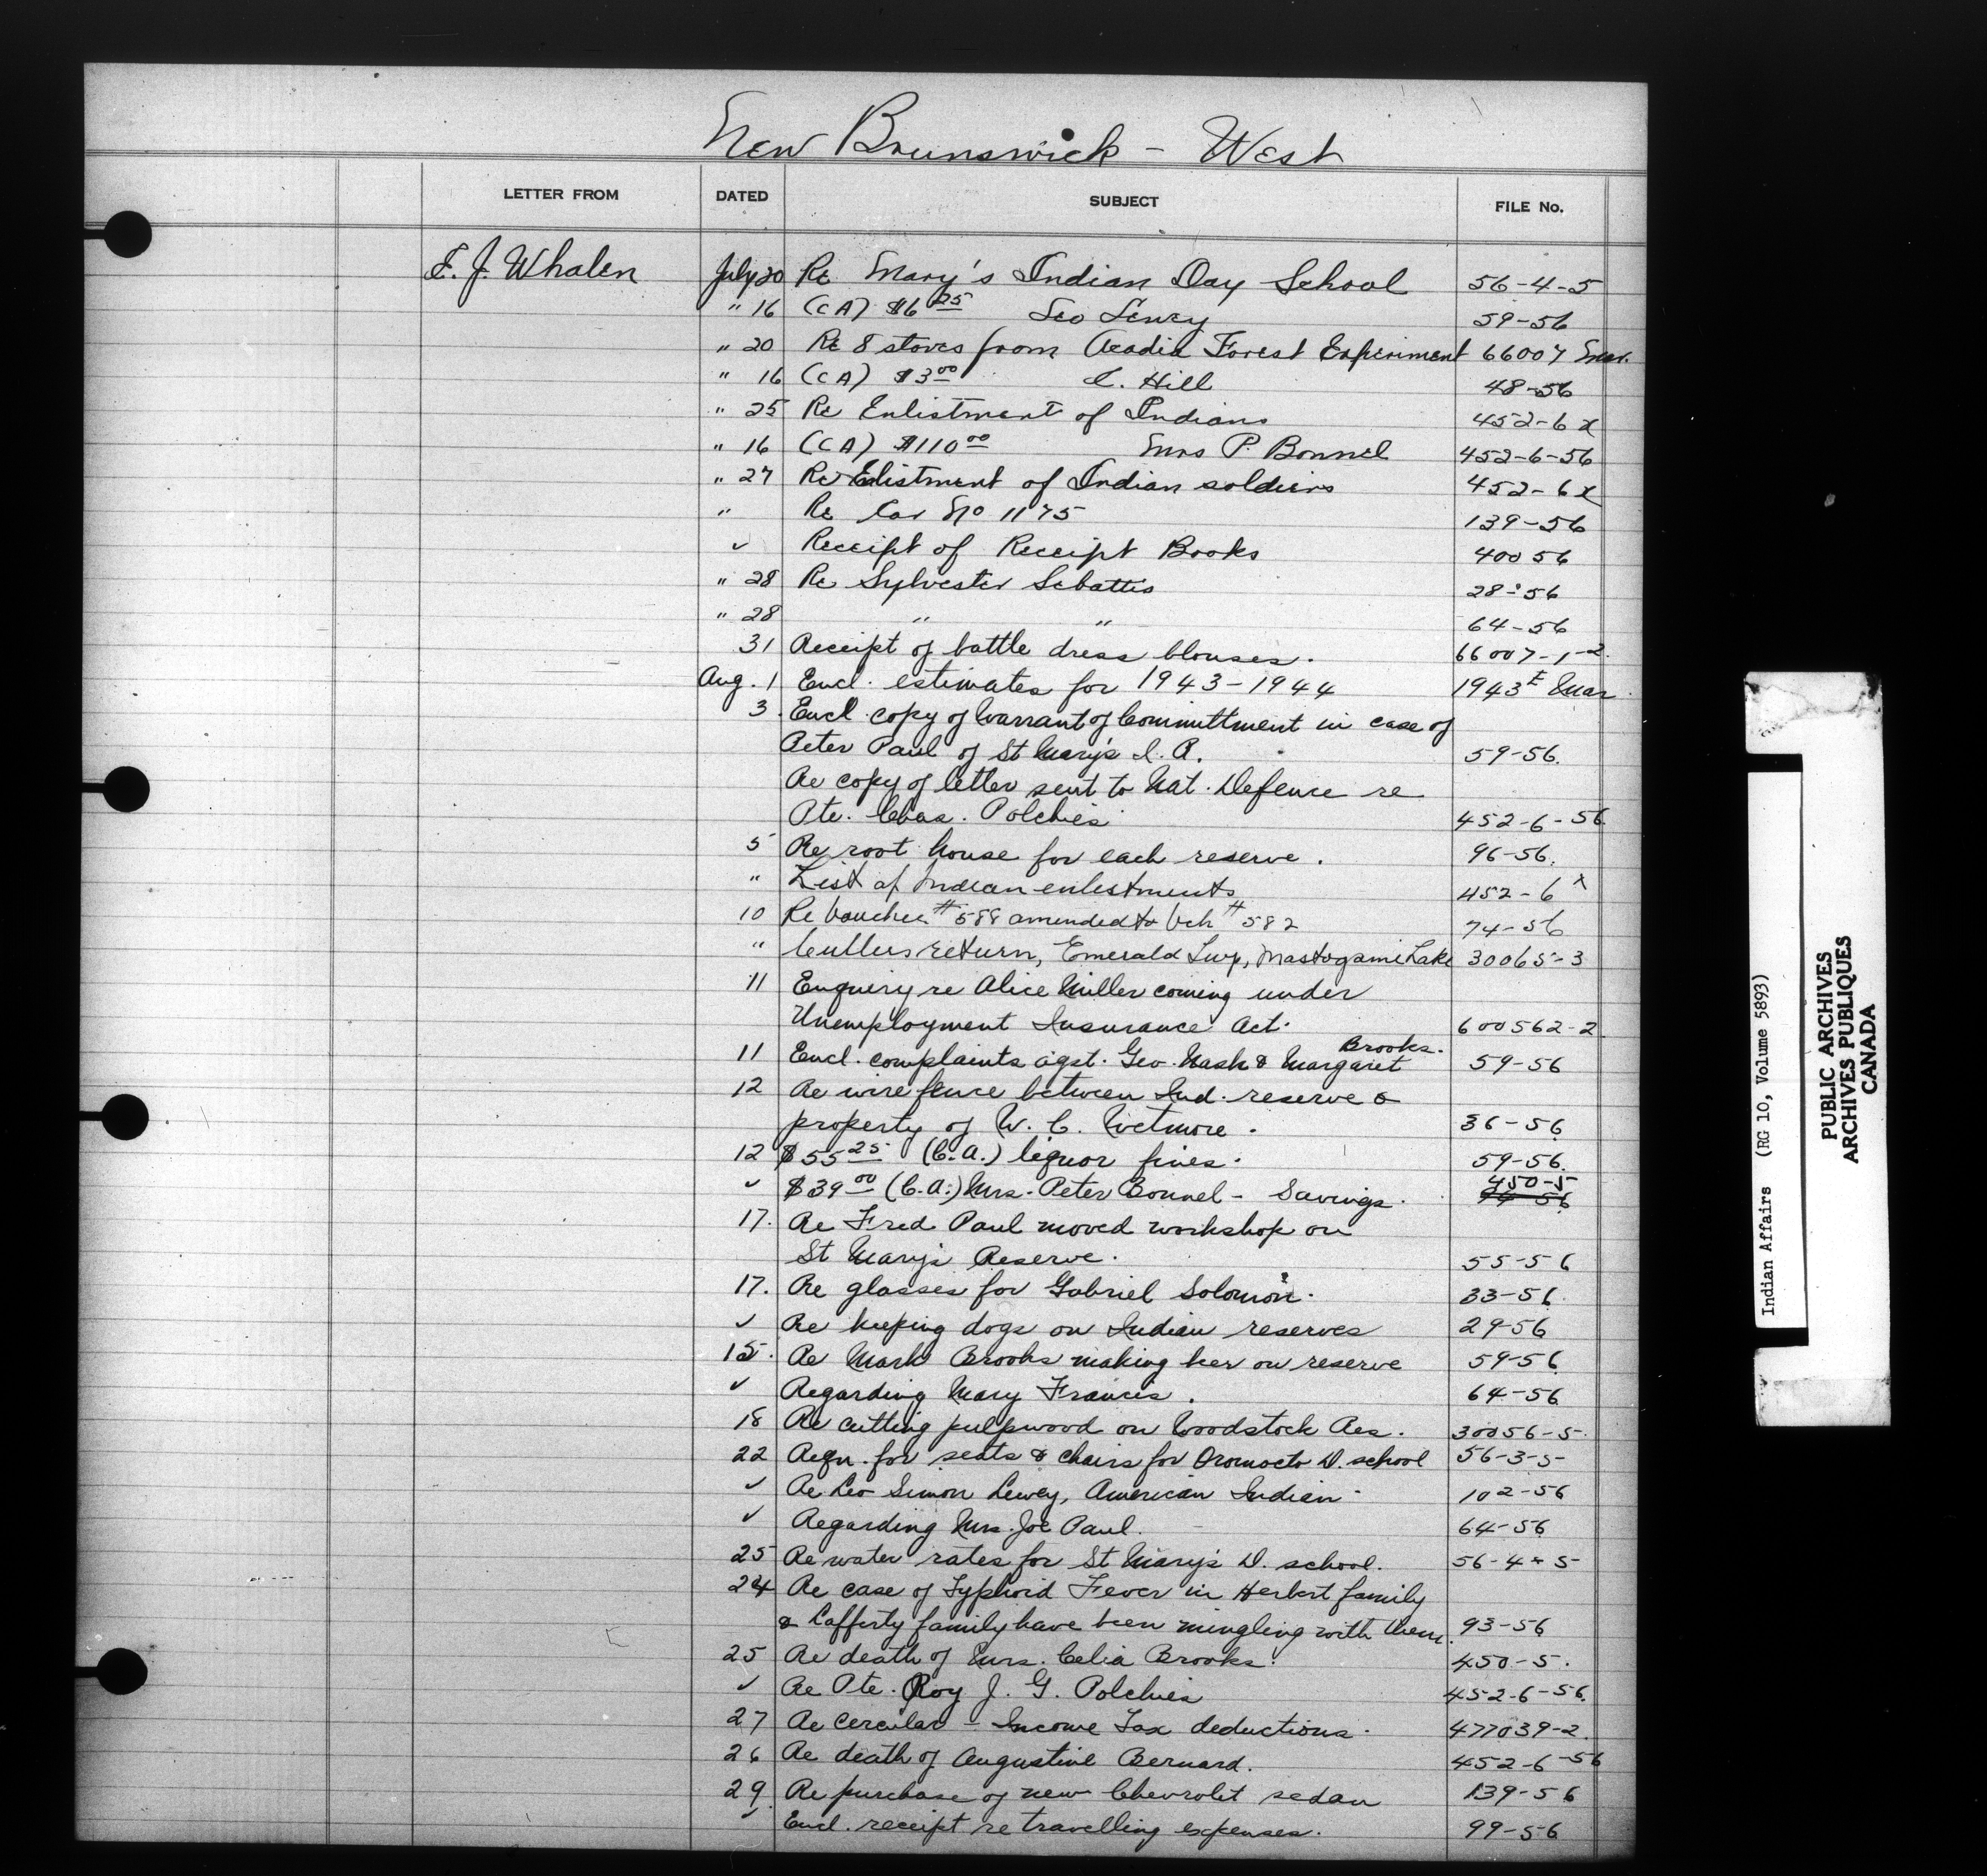 New Brunswick - West
LETTER FROM DATED SUBJECT FILE No.
E. J. Whalen July 20 Re Mary's Indian Day School 56-4-5
" 16 (CA) $6 25 Leo Lewey 59-56
" 20 Re 8 stoves from Acadia Forest Experiment 66007 Mar.
" 16 (CA) $3 00 C. Hill 48-56
" 25 Re Enlistment of Indians 452-6 x
" 16 (CA) $110 00 Mrs P. Bonnel 452-6-56
" 27 Re Elistment of Indian soldiers 452-6 x
" Re Car No 1175 139-56
✓ Receipt of Receipt Books 40056
" 28 Re Sylvester Sebattis 28-56
" 28 " " 64-56
31 Receipt of battle dress blouses. 66007-1-2.
Aug. 1 Encl. estimates for 1943-1944 1943 E Mar.
3. Encl. copy of Warrant of Committment in case of
Peter Paul of St Mary's I. R. 59-56.
Re copy of letter sent to Nat. Defence re
Pte. Chas. Polchies 452-6-56.
5 Re root house for each reserve. 96-56.
" List of Indian enlistments 452-6 x
10 Re voucher # 588 amended to Vch # 582 74-56
" Cullers return, Emerald Twp, Mastogami Lake 30065-3
11 Enquiry re Alice Miller coming under
Unemployment Insurance Act. 600562-2
Brooks.
11 Encl. complaints agst. Geo. Nash & Margaret 59-56
12 Re wire fence between Ind. reserve &
property of W. C. Wetmore. 36-56
12 $55 25 (C.A.) liquor fines. 59-56.
450-5
✓ $39 00 (C.A.) Mrs. Peter Bonnel - Savings. 74-56
17. Re Fred Paul moved workshop on
St Mary's Reserve. 55-56
17. Re glasses for Gabriel Solomon. 33-56.
✓ Re keeping dogs on Indian reserves 29-56
15. Re Mark Brooks making beer on reserve 59-56
✓ Regarding Mary Francis. 64-56
18 Re cutting pulpwood on Woodstock Res. 30056-5.
22 Reqn. for seats & chairs for Oromocto D. school 56-3-5
✓ Re Leo Simon Lewey, American Indian 102-56
✓ Regarding Mrs. Joe Paul. 64-56
25 Re water rates for St Mary's D. school. 56-4-5
24 Re case of Typhoid Fever in Herbert family
& Lafferty family have been mingling with them. 93-56
25 Re death of Mrs. Celia Brooks. 450-5.
✓ Re Pte. Roy J. G. Polchies 452-6-56.
27 Re Cercular - Income Tax deductions. 477039-2.
26 Re death of Augustine Bernard. 452-6-56
29. Re purchase of new Chevrolet sedan 139-56
✓ Encl. receipt re travelling expenses. 99-56
Indian Affairs (RG 10, Volume 5893)
PUBLIC ARCHIVES
ARCHIVES PUBLIQUES
CANADA